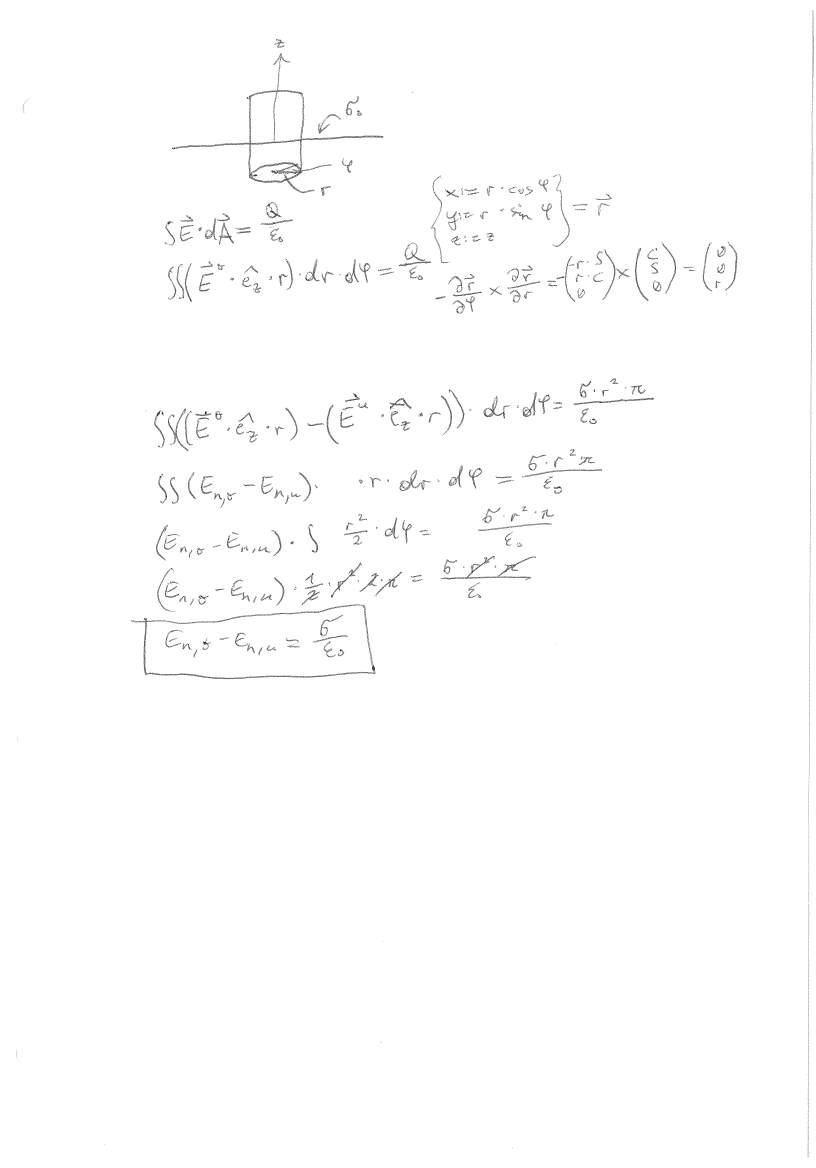 z
σ₀
φ
r
∫E⃗·dA⃗ = Q/ε₀
{ x:= r·cos φ
y:= r·sin φ
z:= z } = r⃗
∬(E⃗ᵒ·ê_z·r)·dr·dφ = Q/ε₀
-∂r⃗/∂φ × ∂r⃗/∂r = -(-r·S, r·C, 0) × (C, S, 0) = (0, 0, r)
∬((E⃗ᵒ·ê_z·r) - (E⃗ᵘ·ê_z·r))·dr·dφ = σ·r²·π/ε₀
∬(E_n,o - E_n,u)· ·r·dr·dφ = σ·r²π/ε₀
(E_n,o - E_n,u)·∫ r²/2·dφ = σ·r²·π/ε₀
(E_n,o - E_n,u)·1/2·r²·2·π = σ·r²·π/ε₀
E_n,o - E_n,u = σ/ε₀